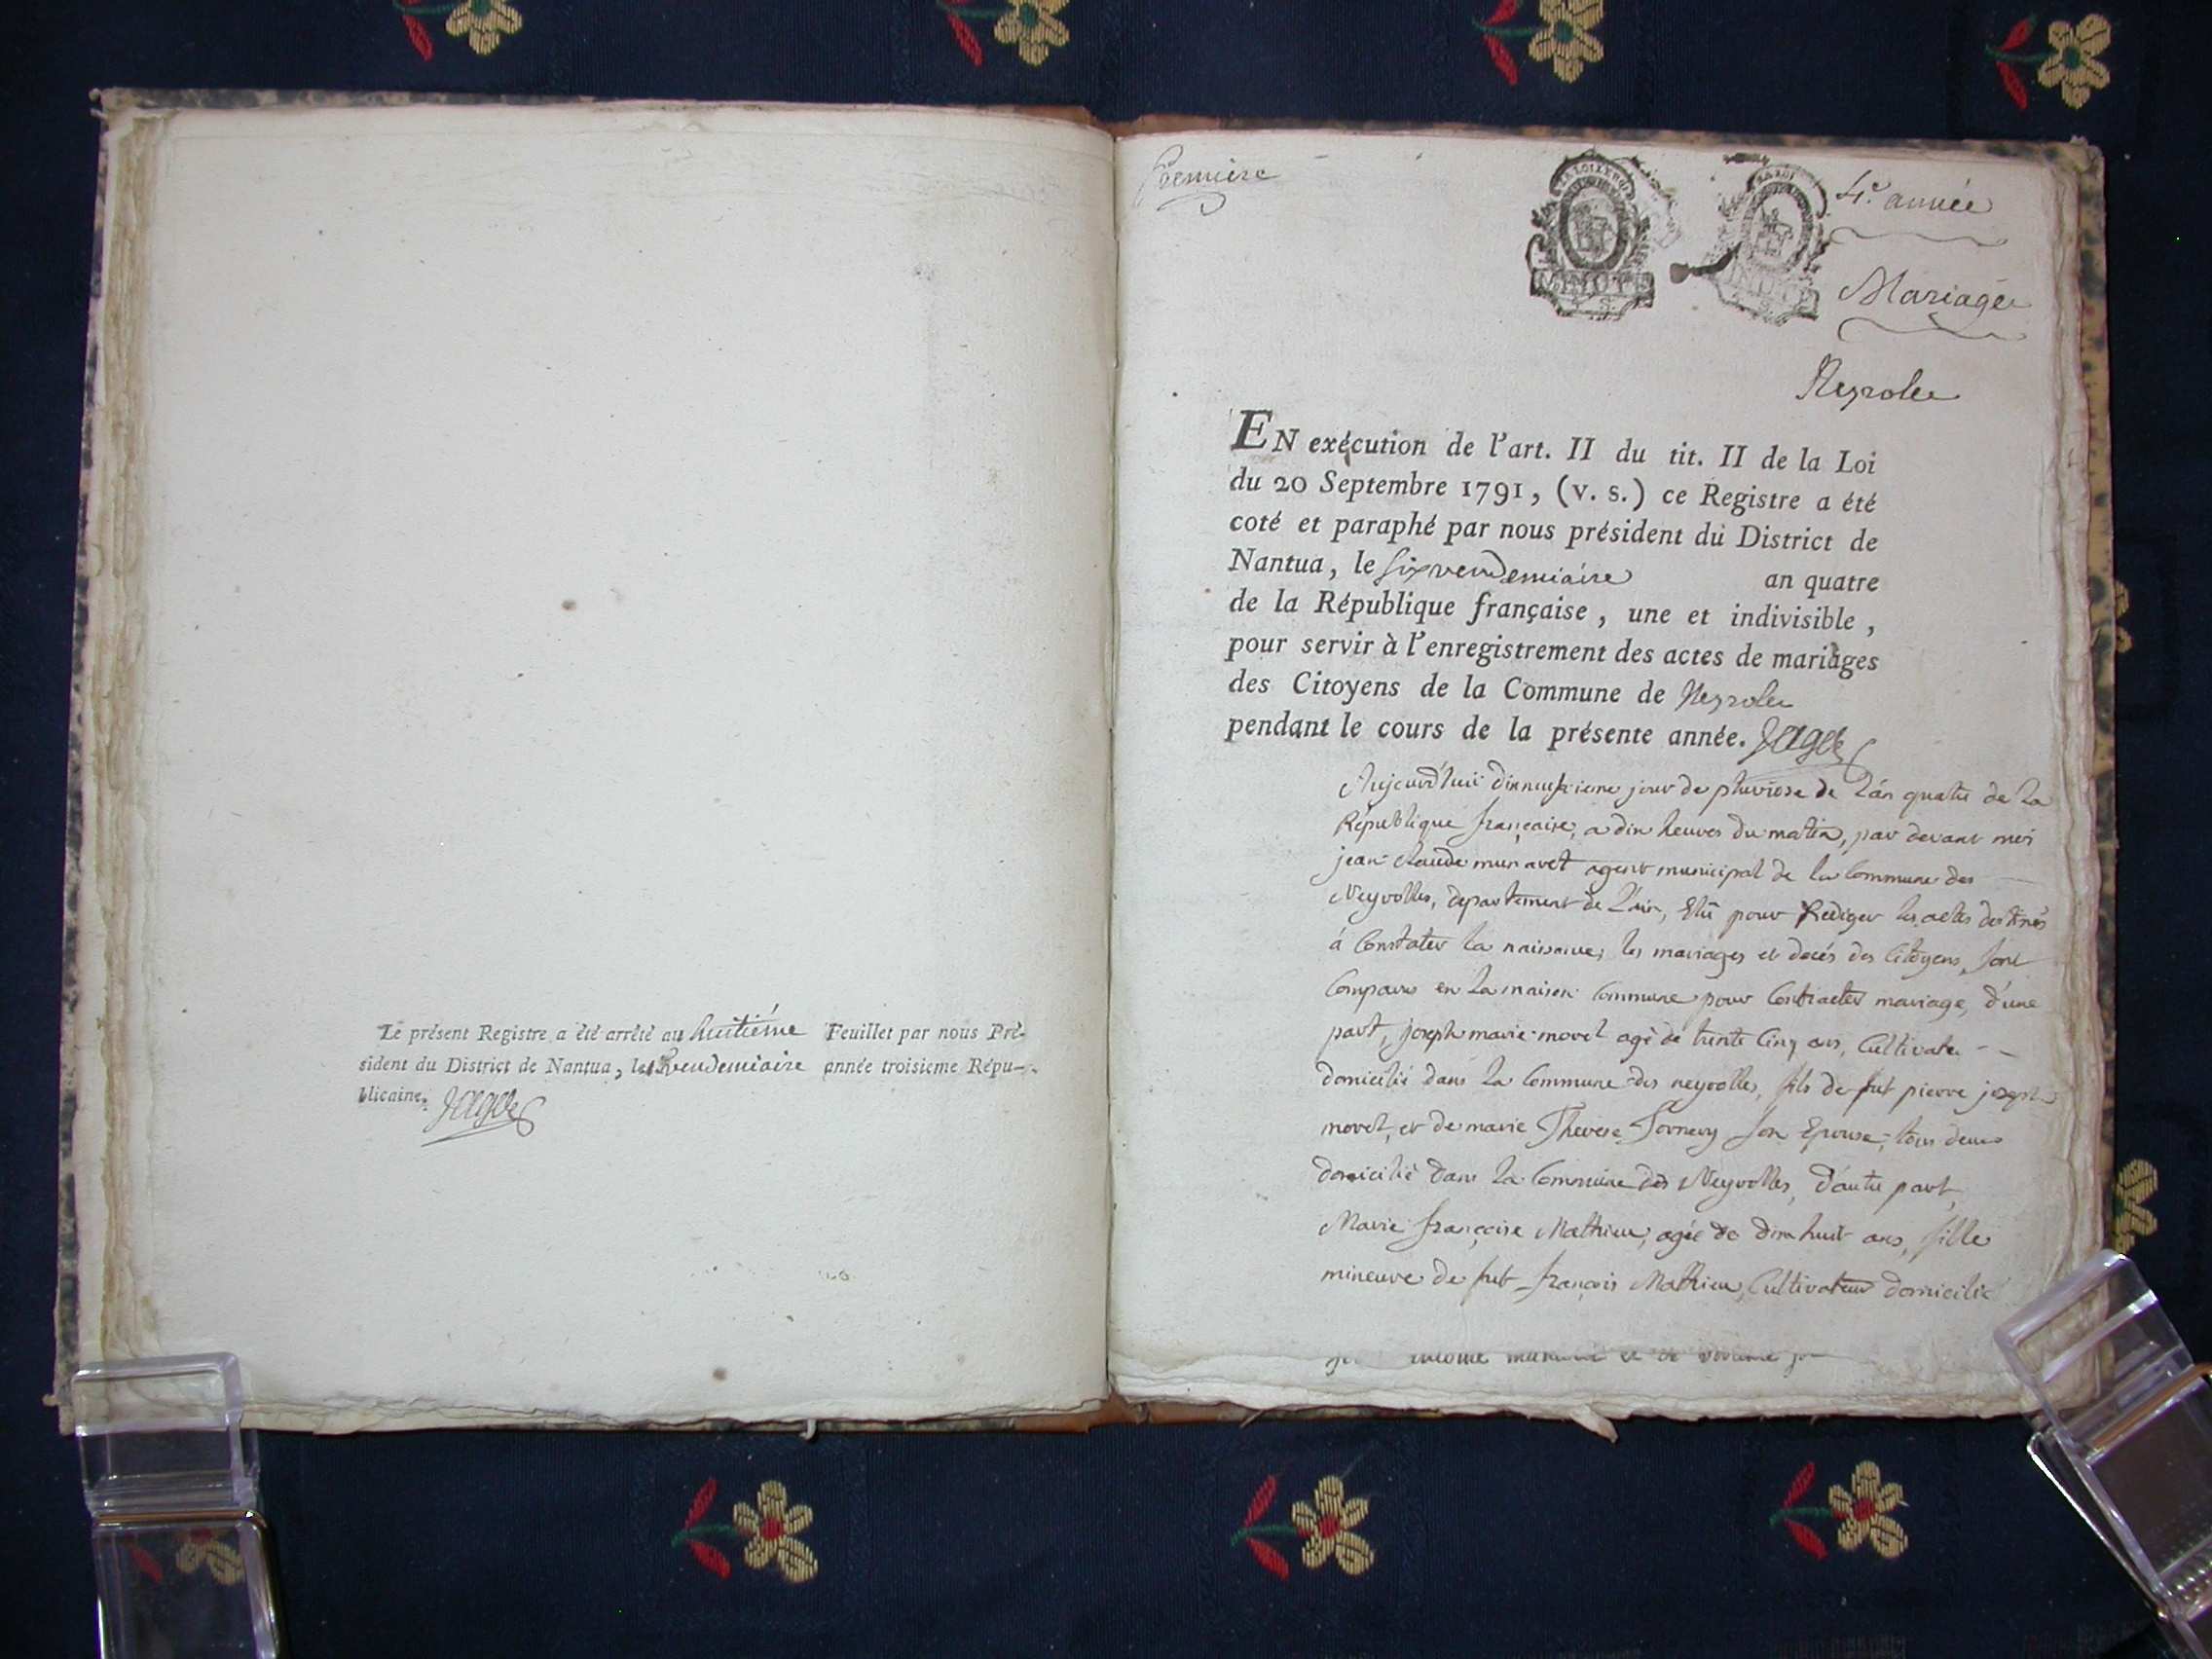 Le présent Registre a été arrêté au huitiéme Feuillet par nous Pré-
sident du District de Nantua, le 1 Vendemiaire année troisieme Répu-
blicaine.
Premiere
LA LOI LE ROI
LA LOI
4.e année
Mariages
Neyroles
EN exécution de l'art. II du tit. II de la Loi
du 20 Septembre 1791, (v. s.) ce Registre a été
coté et paraphé par nous président du District de
Nantua, le six vendemiaire an quatre
de la République française, une et indivisible,
pour servir à l'enregistrement des actes de mariages
des Citoyens de la Commune de Neyroles
pendant le cours de la présente année.
Aujourd'huï dixneufvieme jour de pluviose de l'an quatre de la
République française, a dix heures du matin, par devant moi
jean claude munaret agent municipal de la Commune des
Neyrolles, departement de L'ain, Elû pour Rediger les actes destinés
á Constater la naissance, les mariages et decés des Citoyens, sont
Comparus en la maison Commune pour Contracter mariage, d'une
part, joseph marie morel agé de trente cinq ans, Cultivateur
domicilié dans la Commune des neyrolles, fils de fut pierre joseph
morel, et de marie Therese son Epouse, tous deux
domicilié dans la Commune des Neyrolles, d'autre part,
Marie françoise Mathieu, agée de dix huit ans, fille
mineure de fut françois Mathieu, Cultivateur domicilié